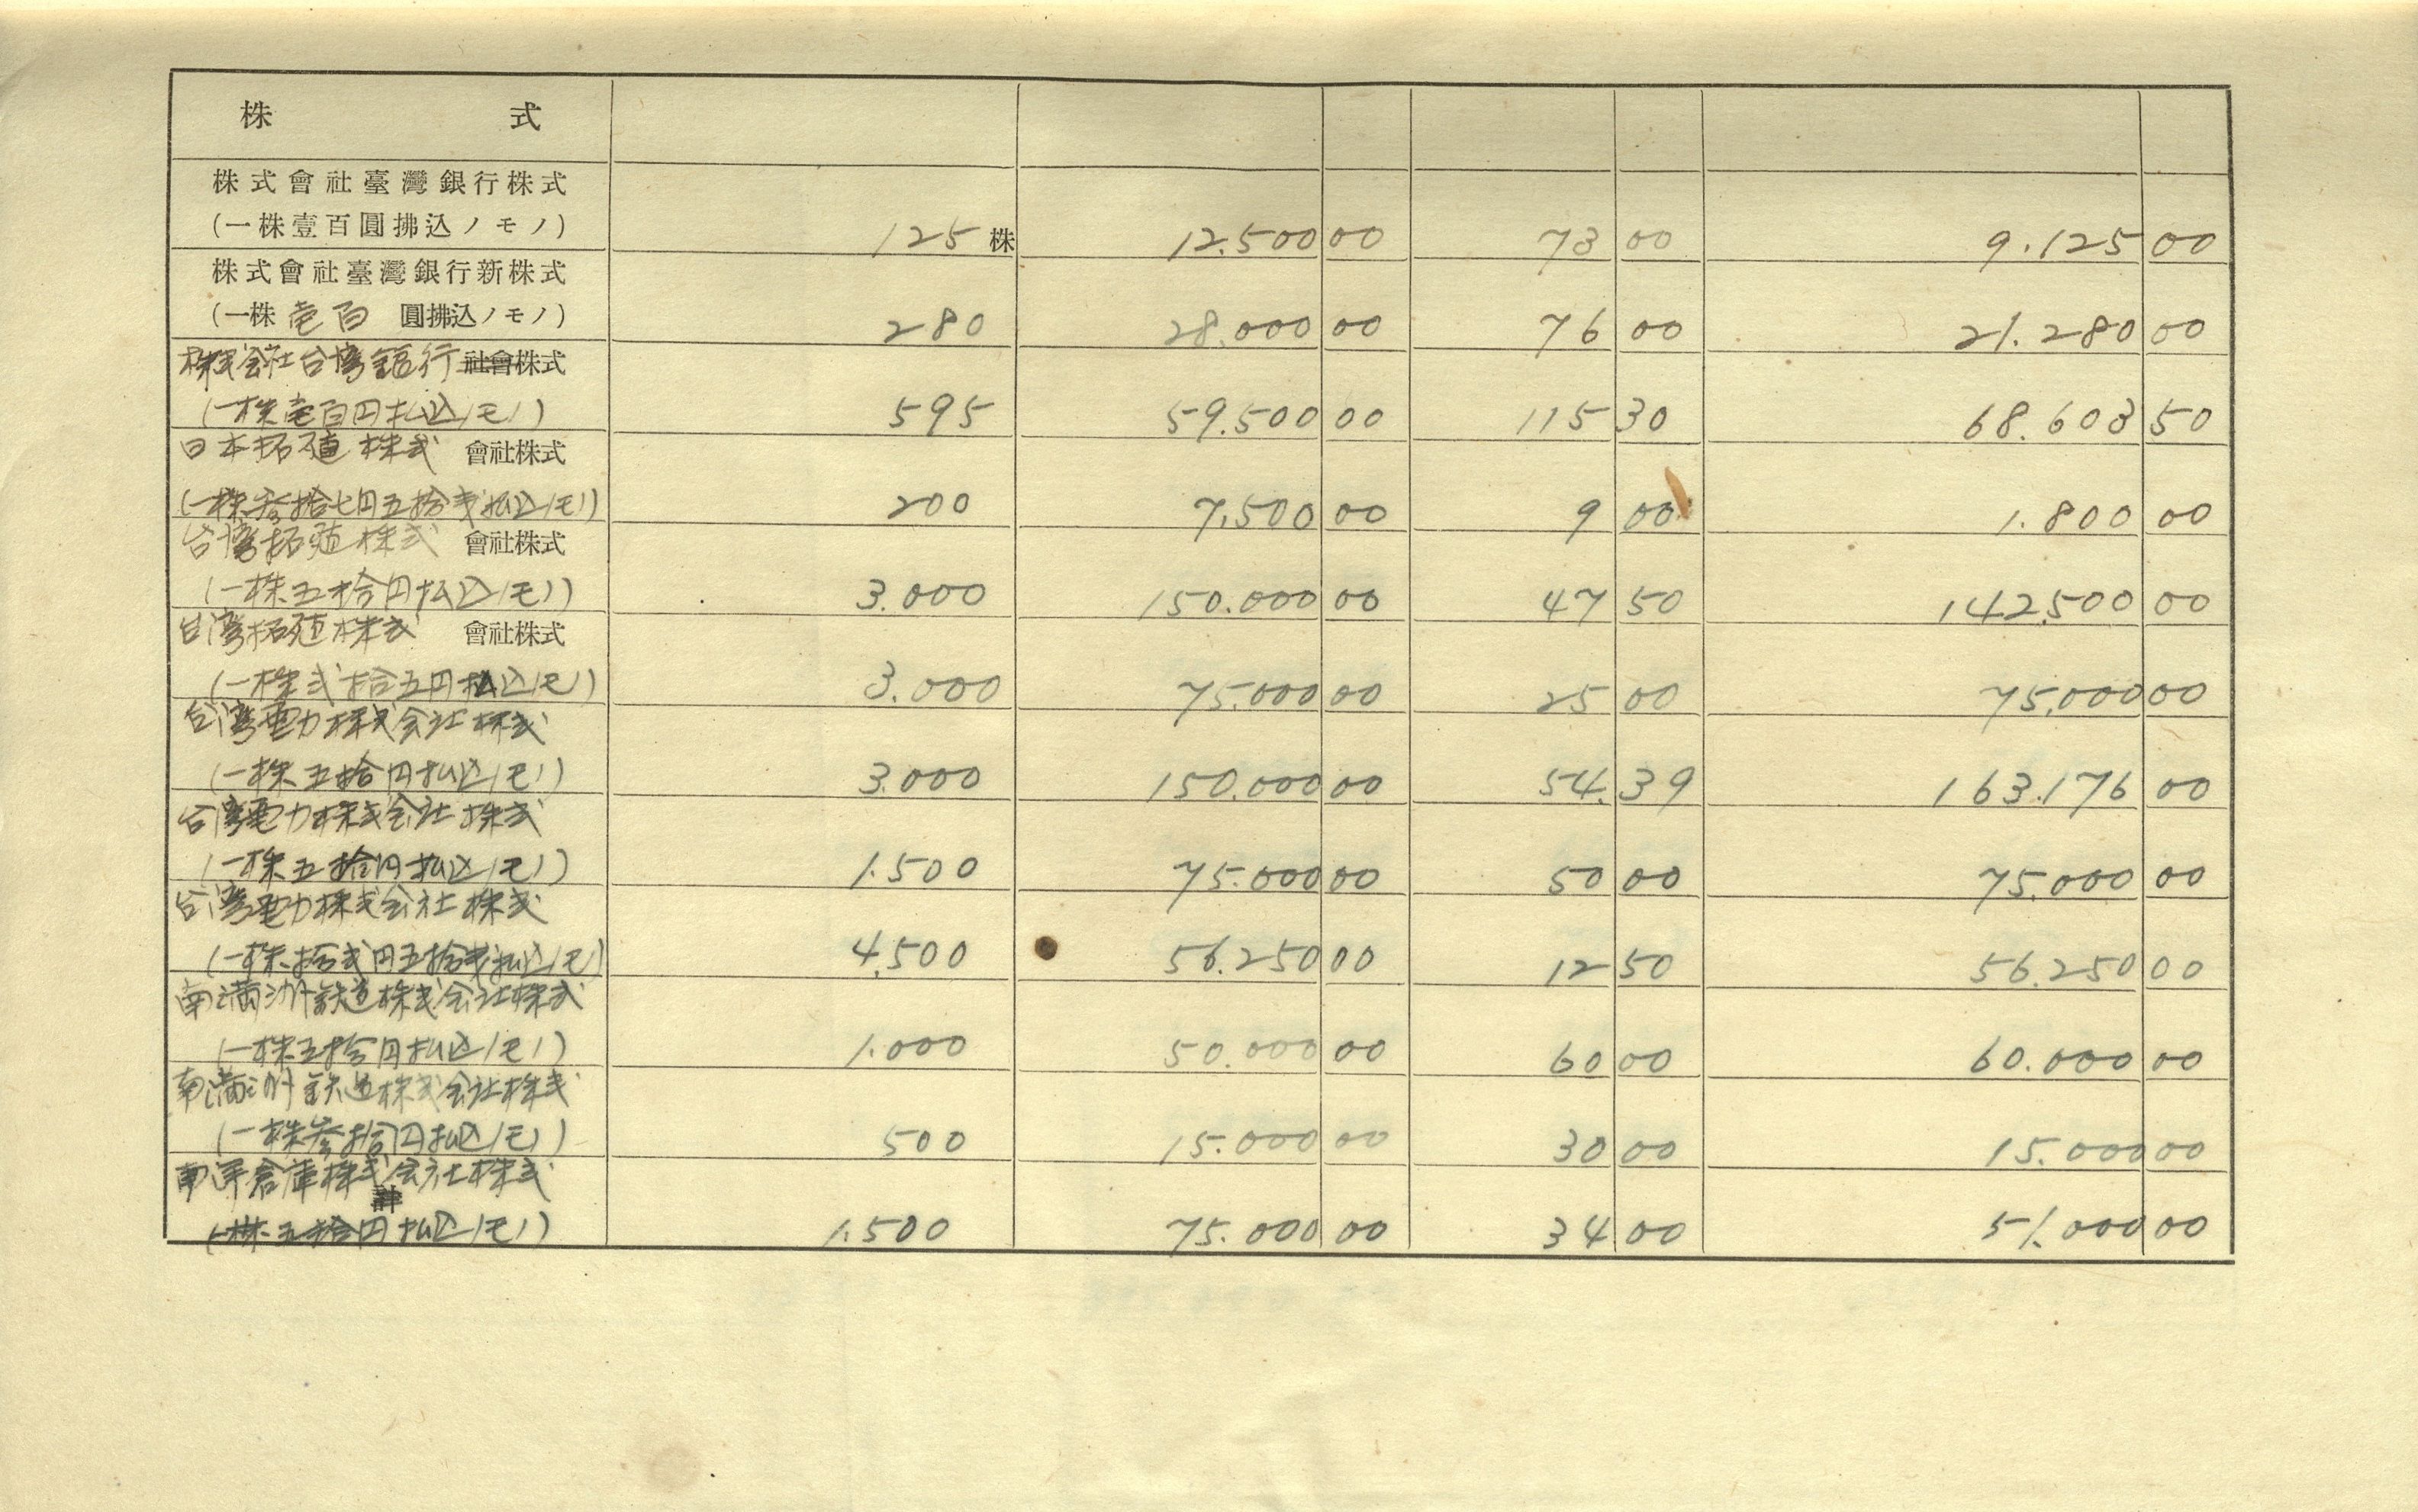 株式
株式會社臺灣銀行株式
(一株壹百圓拂込ノモノ) 125株 12.500 00 73 00 9.125 00
株式會社臺灣銀行新株式
(一株壱百圓拂込ノモノ) 280 28.000 00 76 00 21.280 00
株式会社台湾銀行社會株式
(一株壱百円払込ノモノ) 595 59.500 00 115 30 68.603 50
日本拓殖株式會社株式
(一株参拾七円五拾銭払込ノモノ) 200 7.500 00 9 00 1.800 00
台湾拓殖株式會社株式
(一株五拾円払込ノモノ) 3.000 150.000 00 47 50 142.500 00
台湾拓殖株式會社株式
(一株弍拾五円払込ノモノ) 3.000 75.000 00 25 00 75.000 00
台湾電力株式会社株式
(一株五拾円払込ノモノ) 3.000 150.000 00 54.39 163.176 00
台湾電力株式会社株式
(一株五拾円払込ノモノ) 1.500 75.000 00 50 00 75.000 00
台湾電力株式会社株式
(一株拾弍円五拾銭払込ノモノ) 4.500 56.250 00 12 50 56.250 00
南満洲鉄道株式会社株式
(一株五拾円払込ノモノ) 1.000 50.000 00 60 00 60.000 00
南満洲鉄道株式会社株式
(一株参拾円払込ノモノ) 500 15.000 00 30 00 15.000 00
南洋倉庫株式会社株式
計
(一株五拾円払込ノモノ) 1.500 75.000 00 34 00 51.000 00